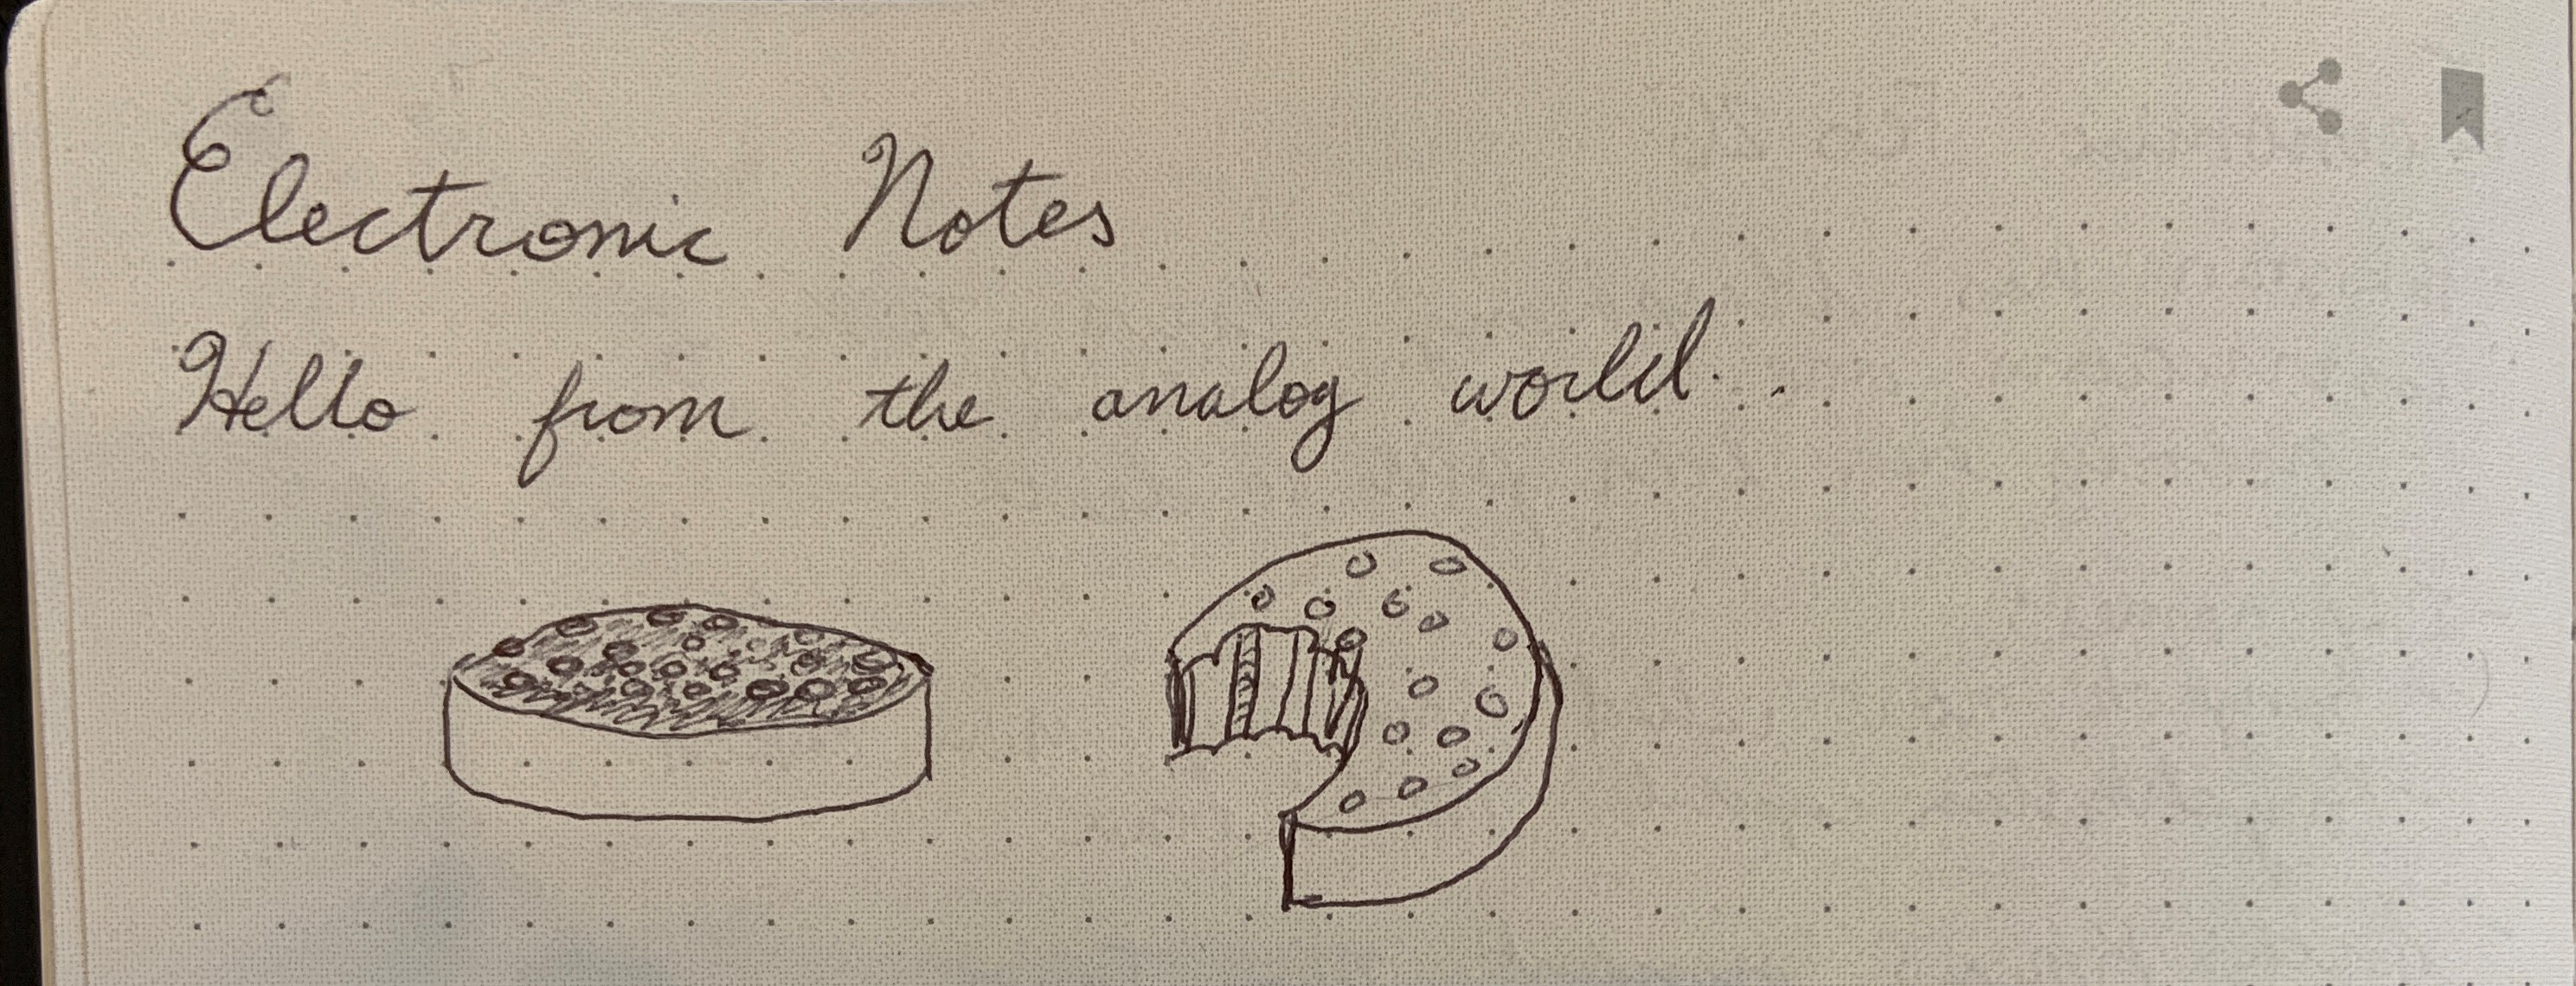 Electronic Notes
Hello from the analog world.